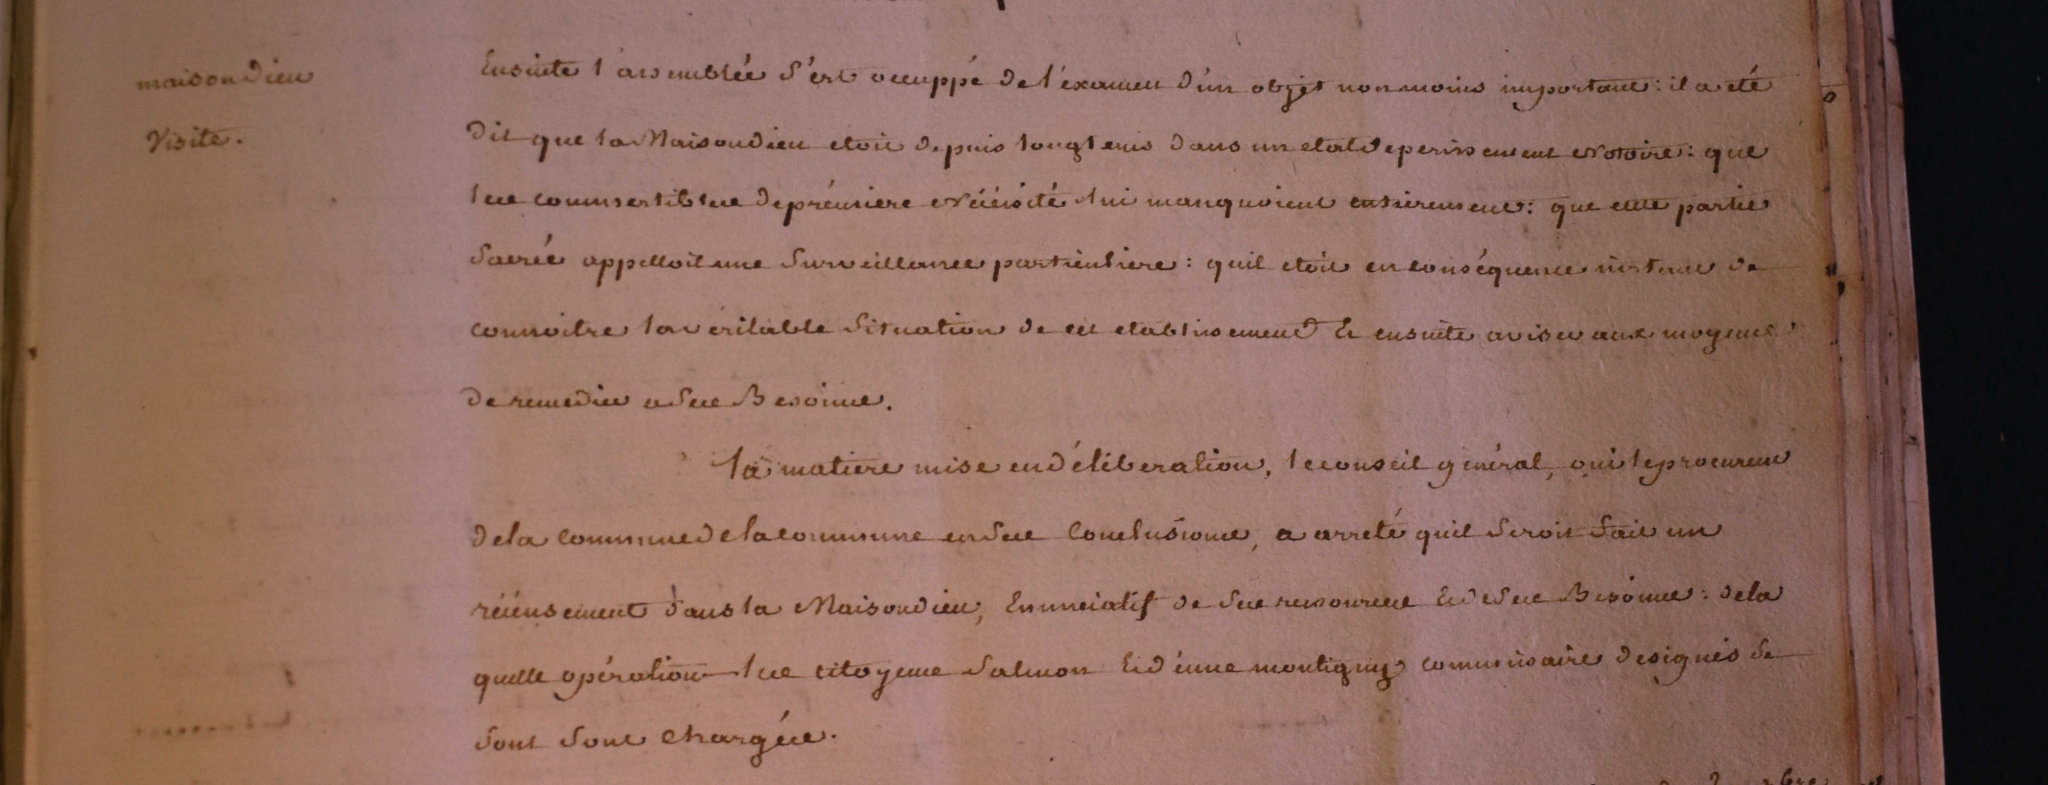 maisondieu
Visite.
Ensuite l'assemblée s'est occuppé de l'examen d'un objet non moins important: il a eté
dit que la Maisondieu etoit depuis longtems dans un etat deperissement notoire: que
les commestibles de prémiere nécéssité lui manquoient entierement: que cette partie
sacrée appelloit une surveillance particuliere: quil etoit en conséquence instant de
connoitre la veritable situation de cet etablissement et ensuite aviser aux moyens
de remedier a ses Besoins.
la matiere mise en déliberation, le conseil général, oui le procureur
de la commune de la commune en ses Conclusions, a arreté quil seroit fait un
récénsement dans la Maisondieu, Enunciatif de ses ressources et de ses Besoins: de la
quelle opération les citoyens Salmon et montigny commissaires designés se
sont sont chargées.